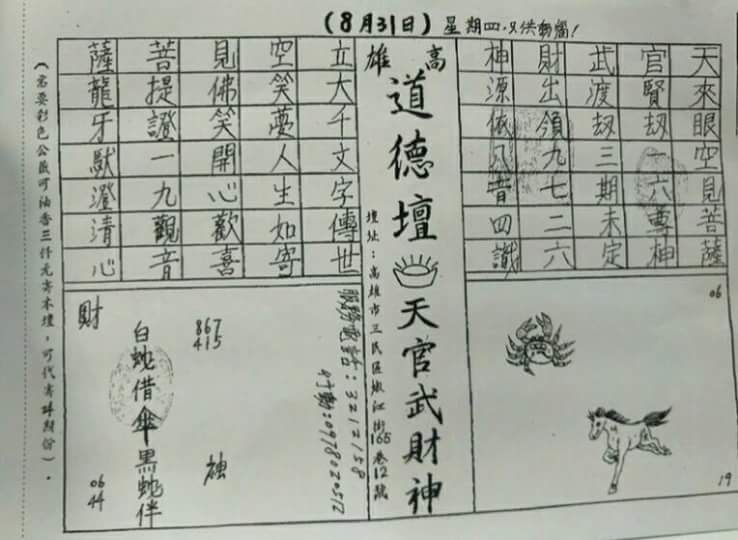 (8月31日) 星期四.只供動腦!
高雄
道德壇 天官武財神
壇址:高雄市三民區嫩江街165巷12號
天來眼空見菩薩
官賢劫一六尊神
武渡劫三期未定
財出領九七二六
神源依八昔四識
立大千文字傳世
空笑夢人生如寄
見佛笑開心歡喜
菩提證一九觀音
薩龍牙獸澄清心
06
19
服務電話:3212158
行動:0978020512
867
415
財
白蛇借傘黑蛇伴
06
44
(若要彩色公籤可油香三仟元寄本壇,可代寄4期份).